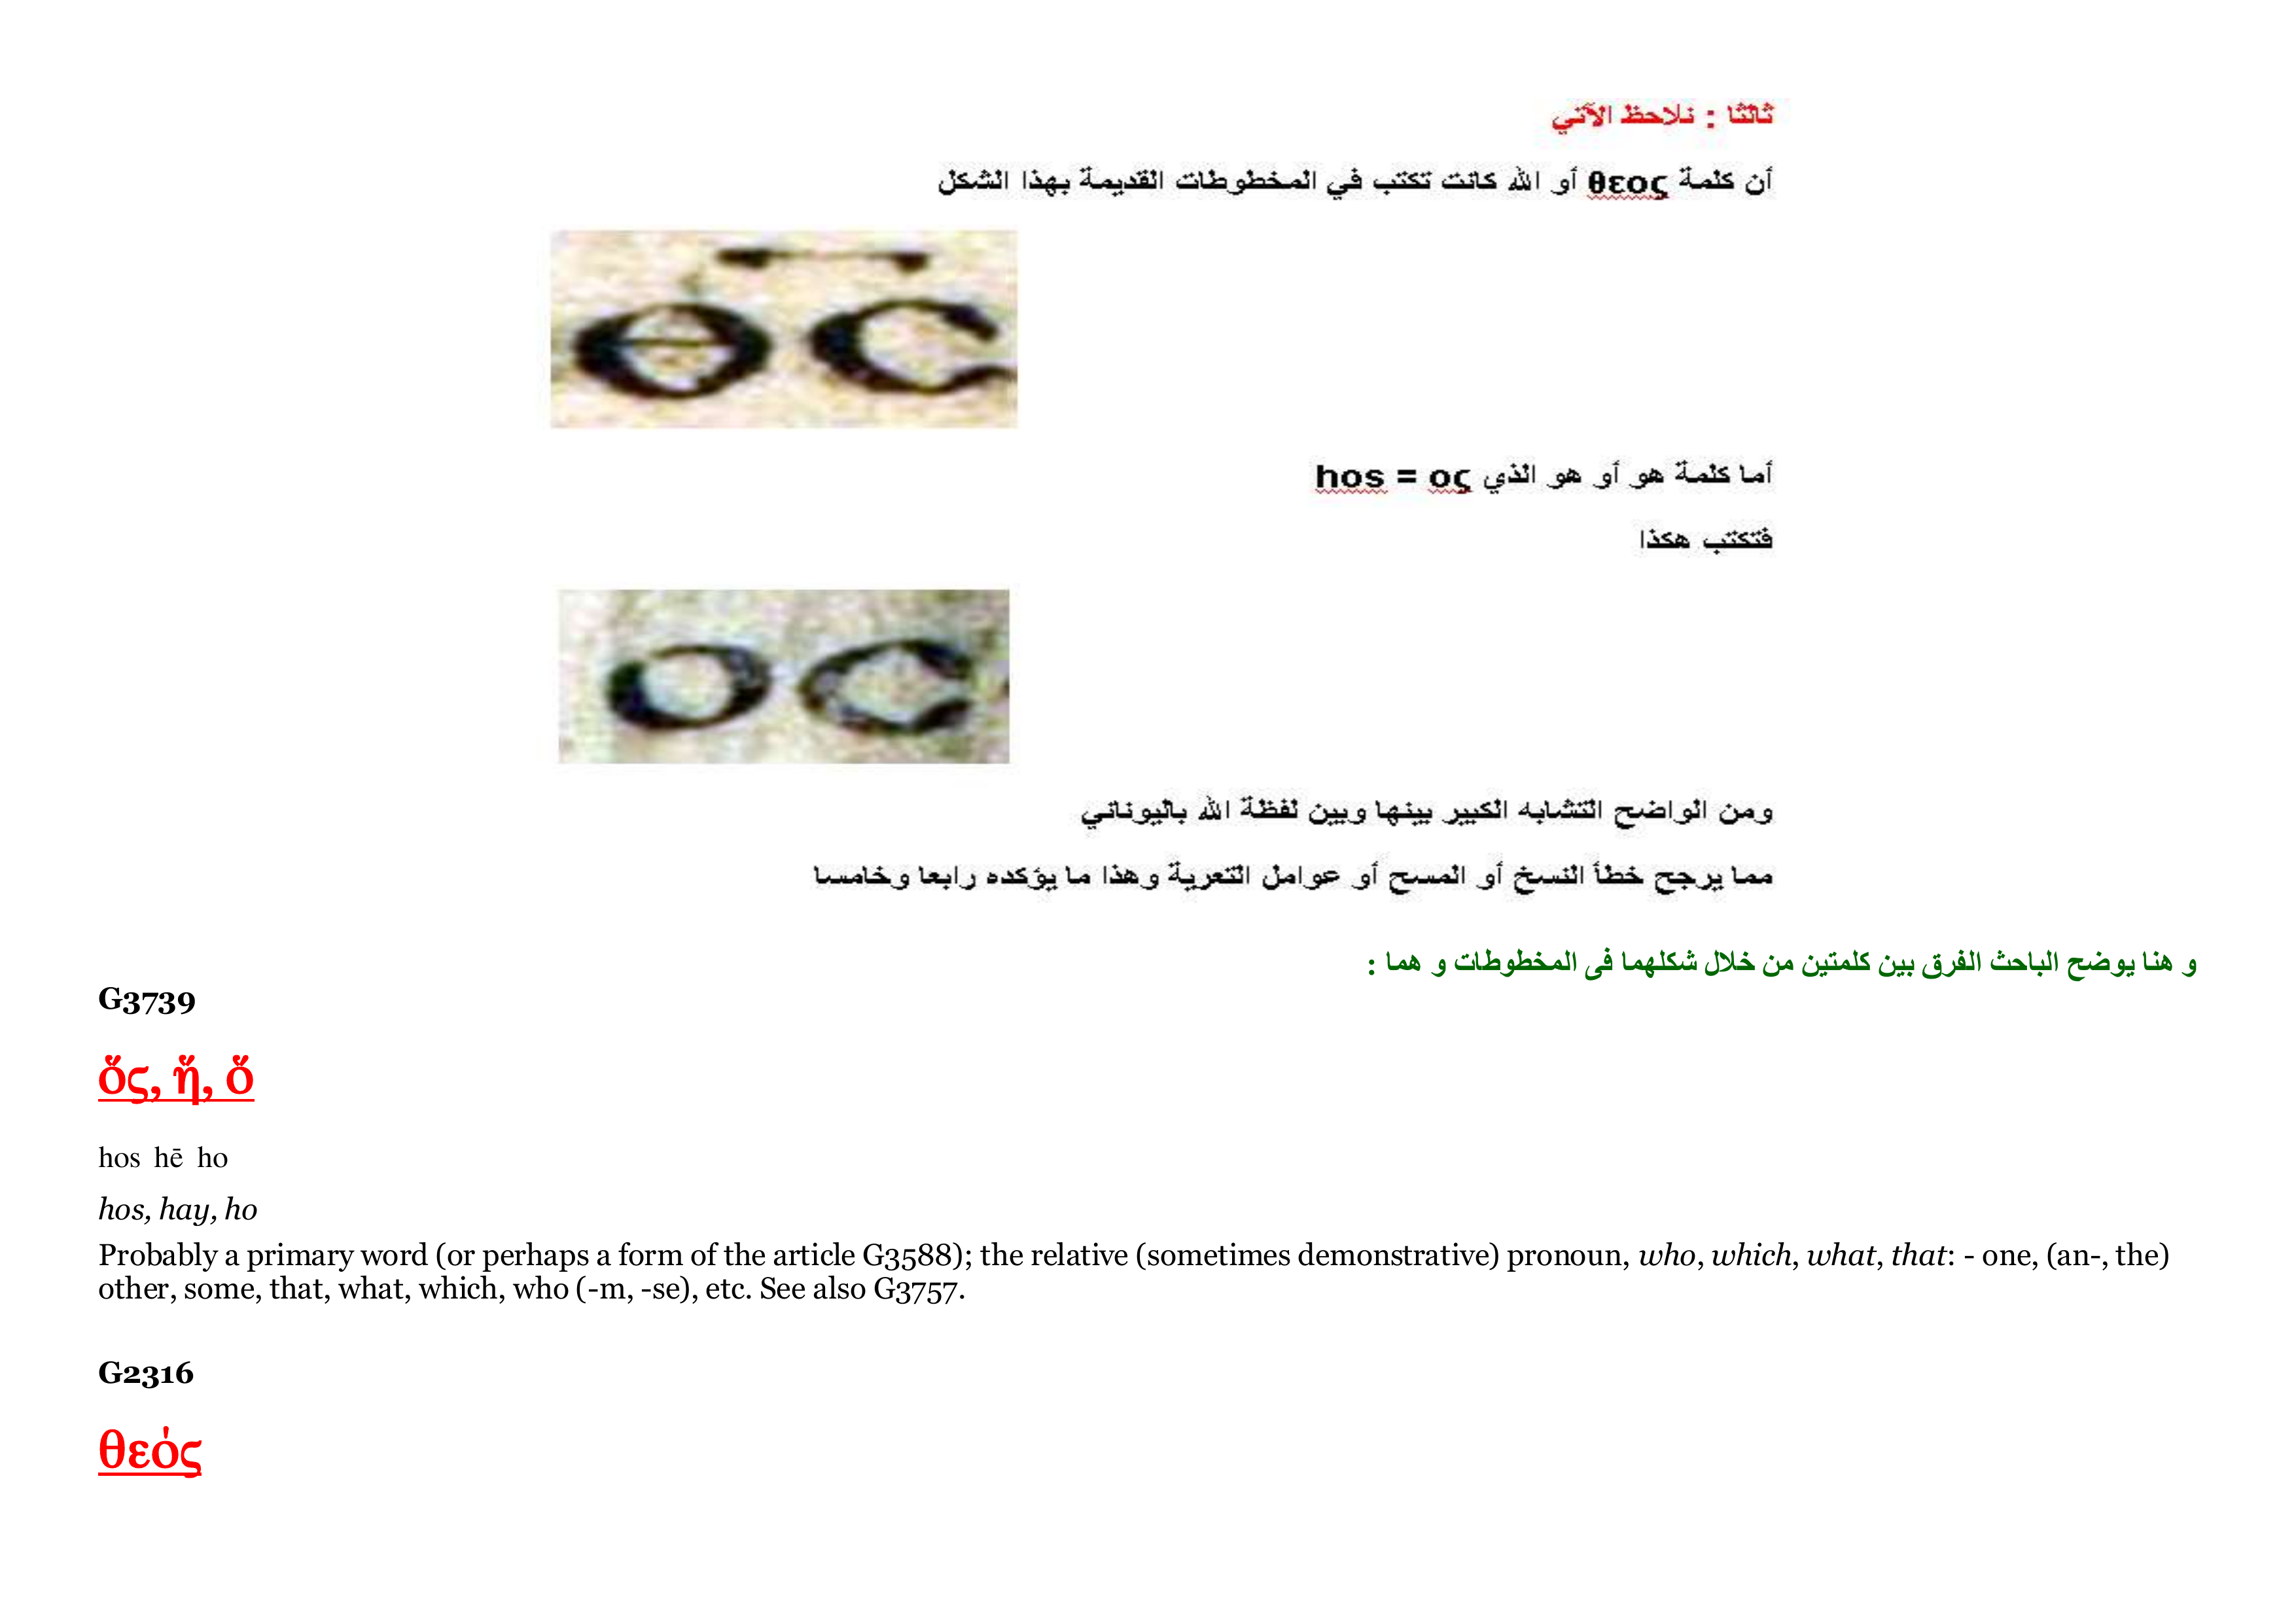 ثالثا : نلاحظ الآتي
أن كلمة θεος أو الله كانت تكتب في المخطوطات القديمة بهذا الشكل
ΘC
أما كلمة هو أو هو الذي hos = ος
فتكتب هكذا
OC
ومن الواضح التشابه الكبير بينها وبين لفظة الله باليوناني
مما يرجح خطأ النسخ أو المسح أو عوامل التعرية وهذا ما يؤكده رابعا وخامسا
و هنا يوضح الباحث الفرق بين كلمتين من خلال شكلهما فى المخطوطات و هما :
G3739
ὅς, ἥ, ὅ
hos hē ho
hos, hay, ho
Probably a primary word (or perhaps a form of the article G3588); the relative (sometimes demonstrative) pronoun, who, which, what, that: - one, (an-, the)
other, some, that, what, which, who (-m, -se), etc. See also G3757.
G2316
θεός